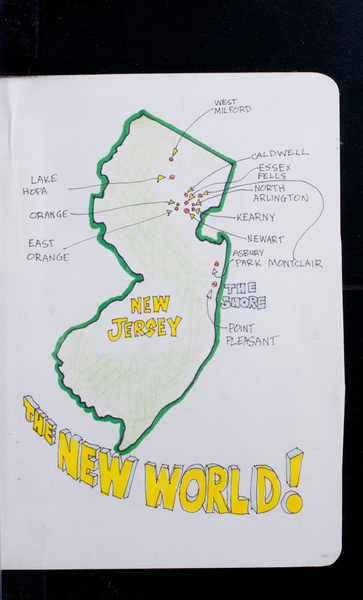 WEST
MILFORD
CALDWELL
ESSEX
FELLS
NORTH
ARLINGTON
LAKE
HOPA
ORANGE
KEARNY
EAST
ORANGE
NEWART
ASBURY
PARK
MONTCLAIR
THE
SHORE
NEW
JERSEY
POINT
PLEASANT
THE NEW WORLD!